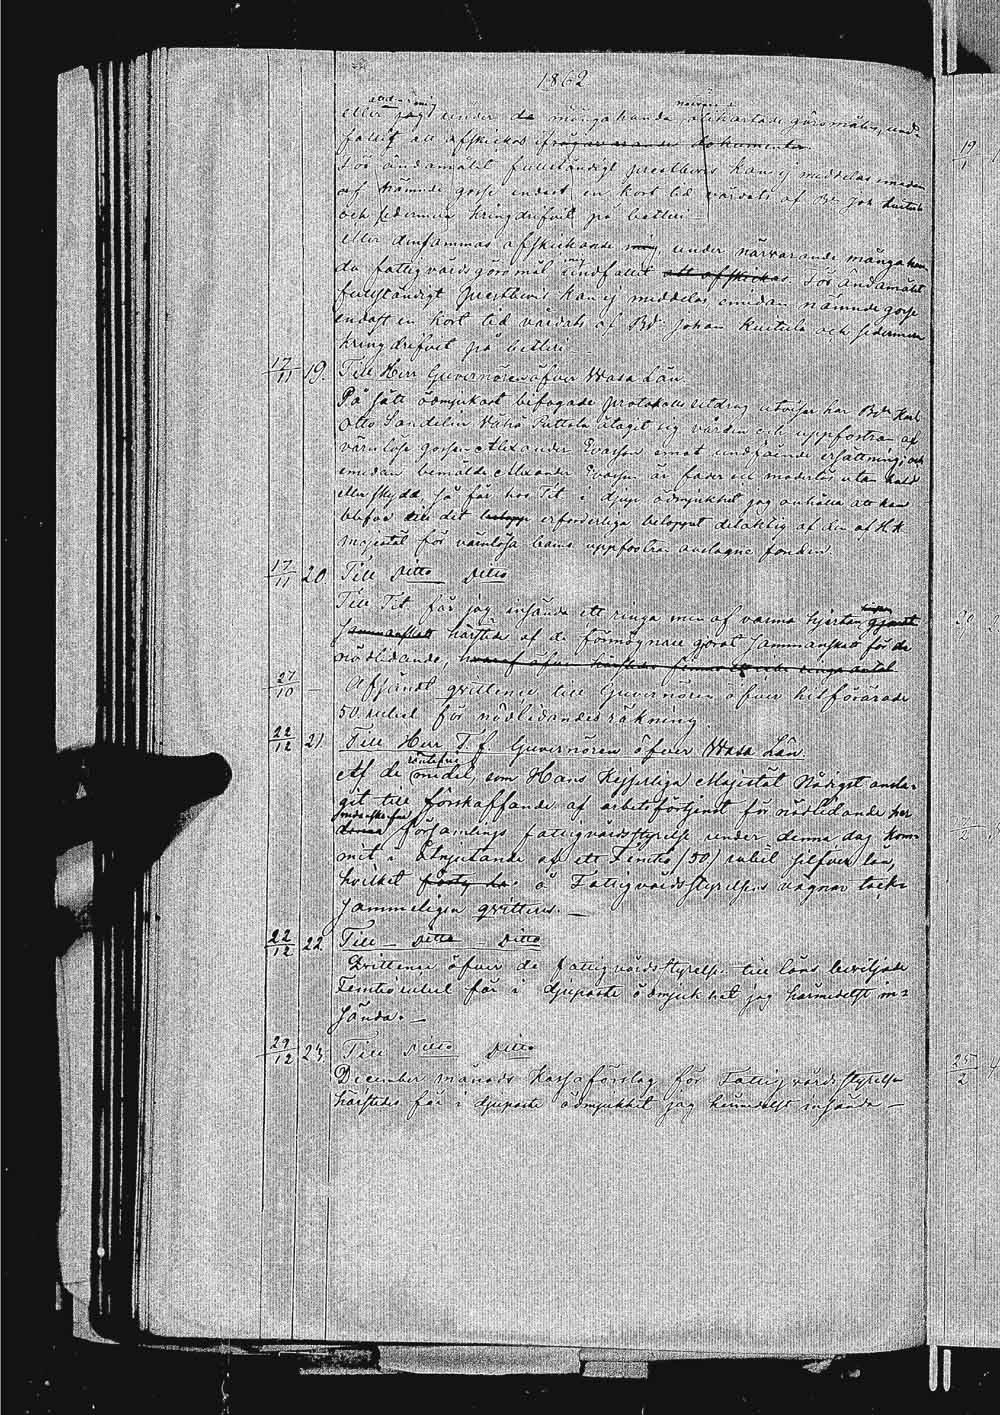 1862
eller jag under de mångahanda göromålen, und-
fallit att afskickas ifrågavarande dokumenter.
För ändamålet fullständigt prestbevis kan ej meddelas emedan
nämnde gosse endast en kort tid vårdats af Bd. Joh. Kuitula
och sedermera kringdrifvit på betleri.
eller densammas afskickande mig, under närvarande mångahan-
da fattigvårdsgöromål undfallit att afskickas. För ändamålet
fullständigt prestbevis kan ej meddelas emedan nämnde gosse
endast en kort tid vårdats af Bd. Johan Kuitula och sedermera
kringdrifvit på betleri.
17/11 19. Till Herr Guvernören öfver Wasa Län.
På sätt ödmjukast bifogade protokolls utdrag utvisar har Bd. Karl
Otto Sandelin åtagit sig vården och uppfostran af
värnlöse gossen Alexander Evasson emot undfående ersättning; och
emedan bemälde Alexander Evasson är fader och moderlös utan
eller skydd, så får hos Tit. i djup ödmjukhet jag anhålla att han
blefve till det belopp erforderliga beloppet delaktig af den af H. K.
Majestät för värnlösa barns uppfostran anslagne fonden.
17/11 20. Till Ditto Ditto
Till Tit. får jag insända ett ringa men af varma hjertan gjordt
sammanskott härstädes af de förmögnare gjordt sammanskott för de
nödlidande,
27/10 – Afsändt qvittence till Guvernören öfver hitförärade
50 rubel för nödlidandes räkning.
22/12 21. Till Herr T. f. Guvernören öfver Wasa Län.
Af de räntefria medel, som Hans Kejserliga Majestät Nådigst ansla-
git till förskaffande af arbetsförtjenst för nödlidande har
denna församlings fattigvårdsstyrelse under denna dag kom-
mit i åtnjutande af ett Femtio (50) rubel silfver lån,
hvilket å Fattigvårdsstyrelsens vägnar tack-
sammeligen qvitteras. —
22/12 22. Till Ditto Ditto
Qvittence öfver de fattigvårdsstyrelsen till låns beviljade
Femtio rubel får i djupaste ödmjukhet jag härmedelst in-
sända. —
29/12 23. Till Ditto Ditto
December månads Kassaförslag för Fattigvårdsstyrelsen
härstädes får i djupaste ödmjukhet jag hermedelst insända —